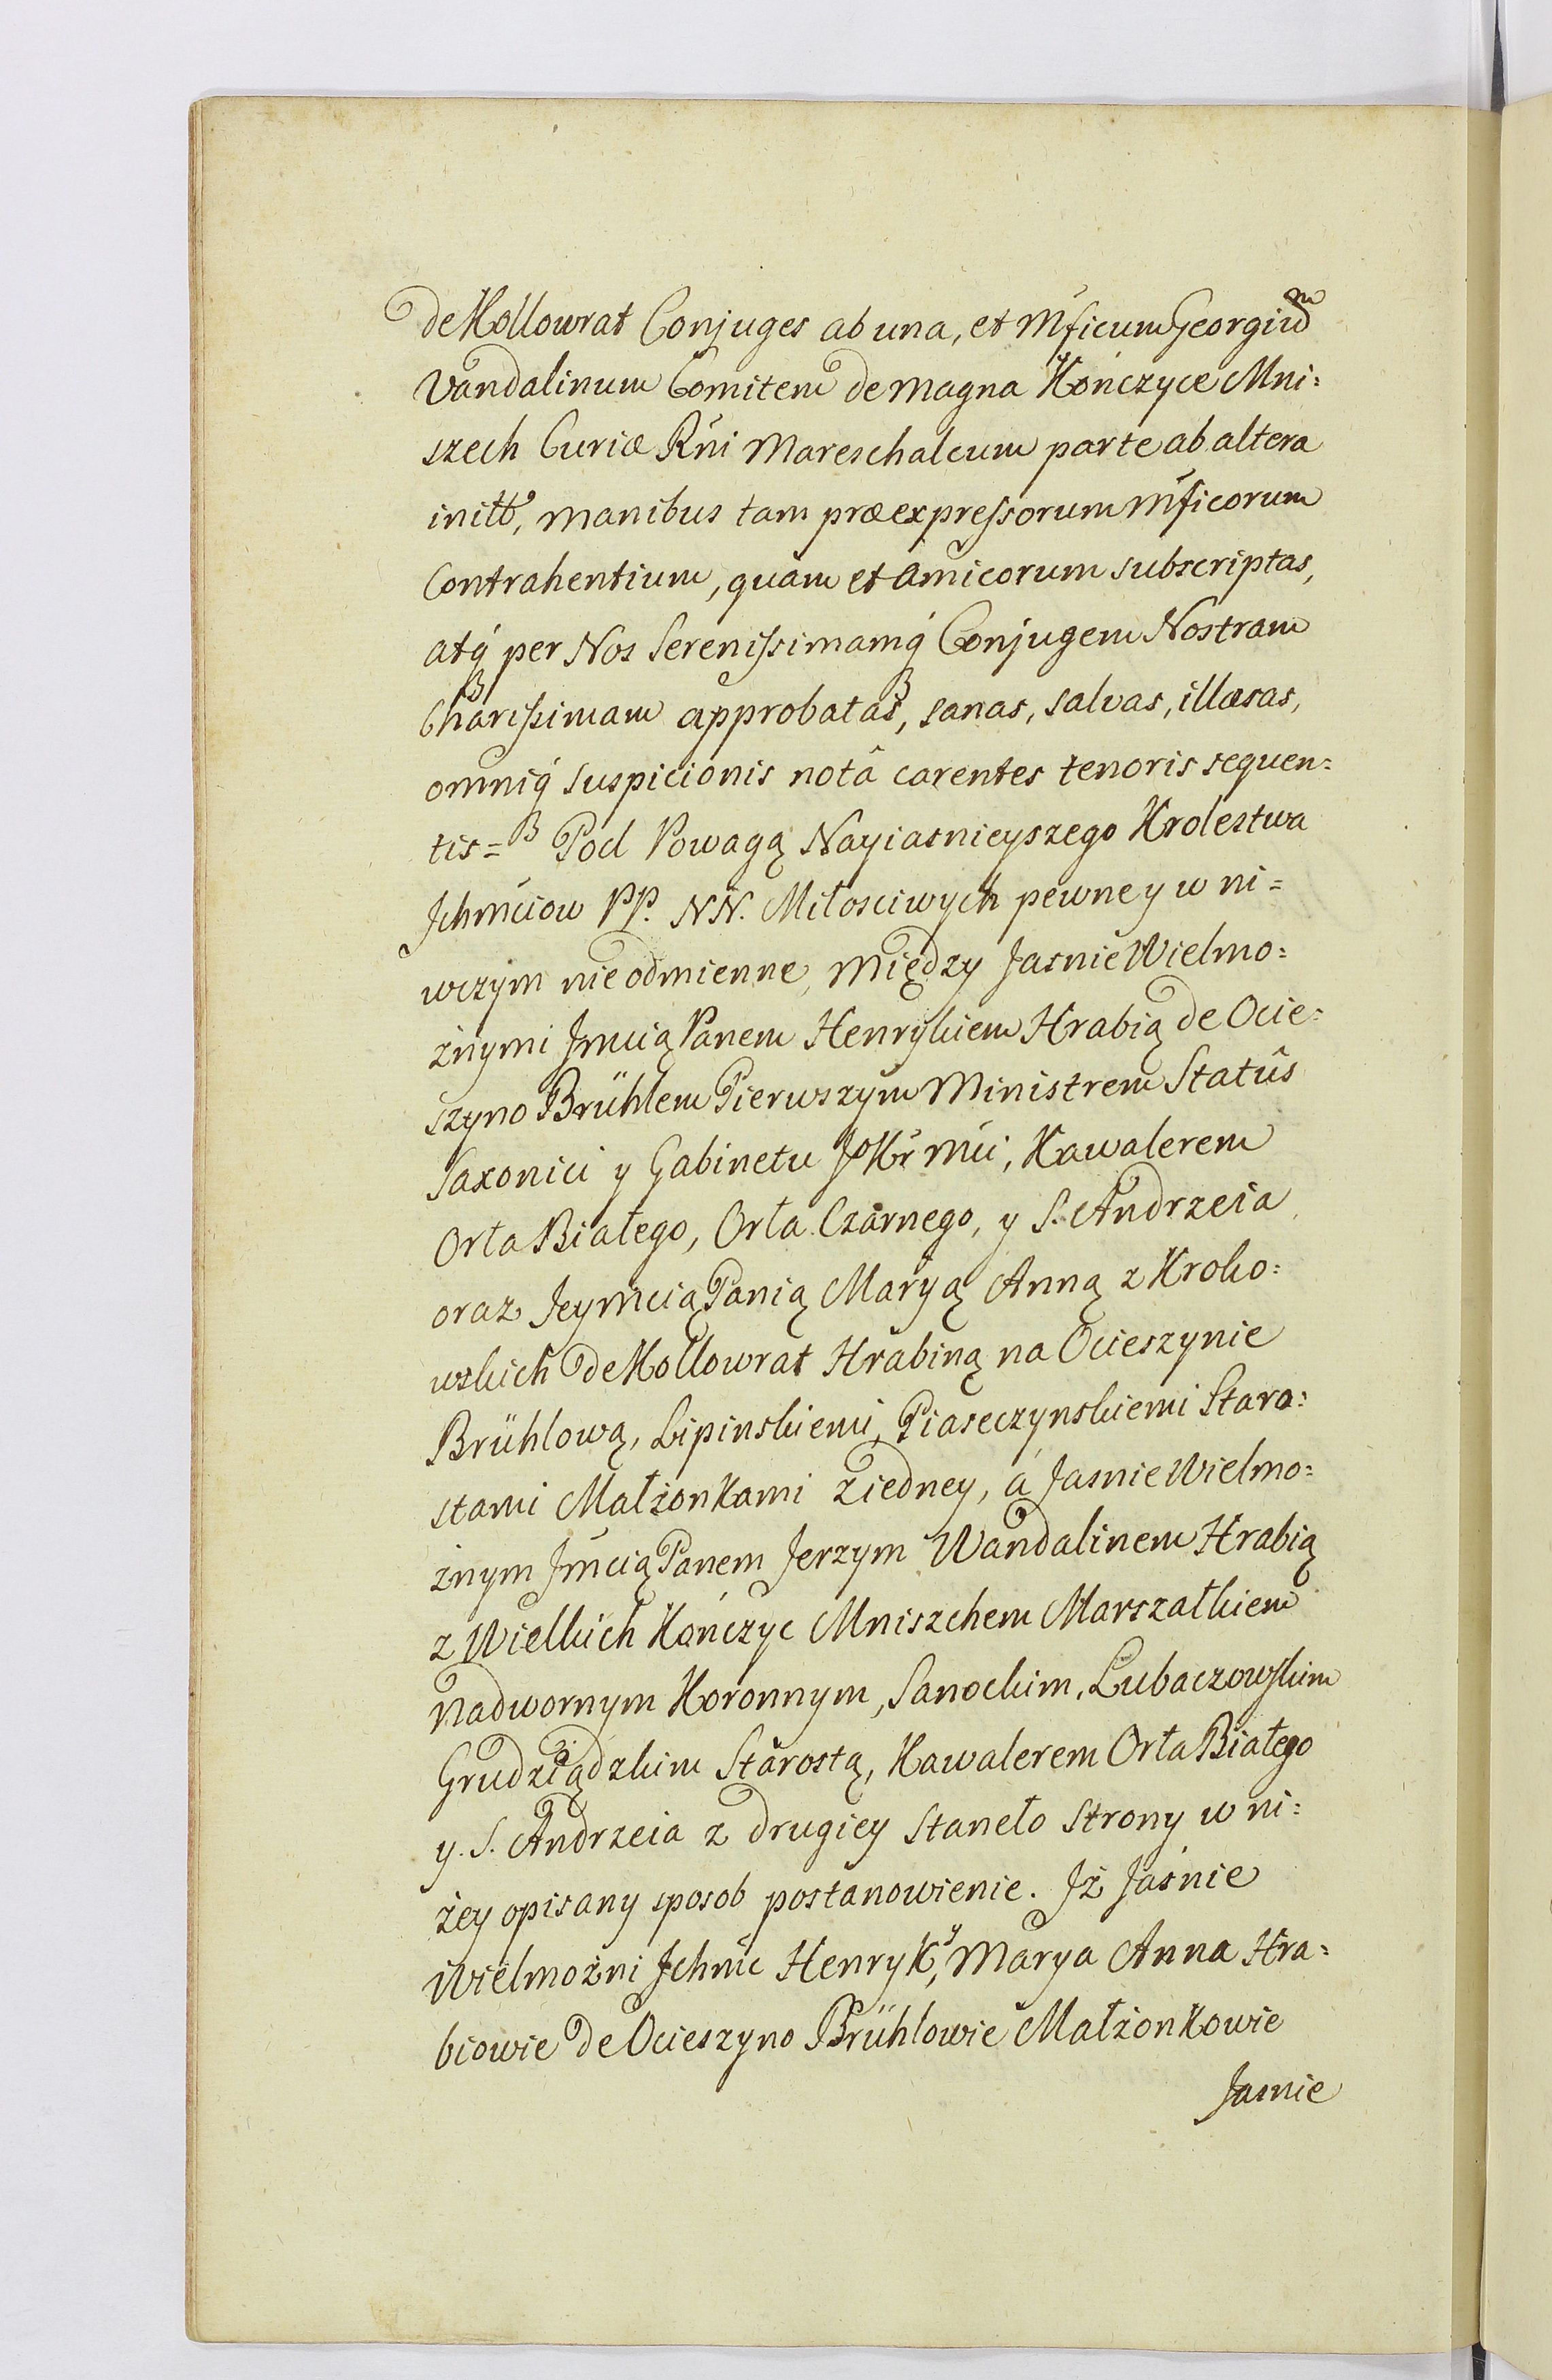 de Kollowrat Conjuges ab una, et Mficum Georgium
Vandalinum Comitem de Magna Kończyce Mni=
szech Curiæ Rni Mareschalcum parte ab altera
initt, manibus tam præexpressorum Mficorum
Contrahentium, quàm et Amicorum subscriptas,
atq́ per Nos Serenissimamq́ Conjugem Nostram
Charissimam approbatas, sanas, salvas, illæsas,
omniq́ suspicionis notâ carentes tenoris sequen=
tis= Pod Powagą Nayiasnieyszego Krolestwa
Ichmciow PP. NN. Miłosciwych pewne y w ni=
wczym nieodmienne, między Jasnie Wielmo=
żnymi Jmcią Panem Henrykiem Hrabią de Ocie=
szyno Brühlem Pierwszym Ministrem Statûs
Saxonici y Gabinetu JoKr Mci, Kawalerem
Orła Białego, Orła Czarnego, y S. Andrzeia,
oraz Jeymcią Panią Maryą Anną z Kroko=
wskich de Kollowrat Hrabiną na Ocieszynie
Brühlową, Lipinskiemi, Piaseczynskiemi Staro=
stami Małżonkami z iedney, á Jasnie Wielmo=
żnym Jmcią Panem Jerzym Wandalinem Hrabią
z Wielkich Kończyc Mniszchem Marszałkiem
Nadwornym Koronnym, Sanockim, Lubaczowskim
Grudziądzkim Starostą, Kawalerem Orła Białego
y. S. Andrzeia z drugiey staneło strony w ni=
żey opisany sposob postanowienie. Iż Jaśnie
Wielmożni Ichmc Henryk, y Marya Anna Hra=
biowie de Ocieszyno Brühlowie Małżonkowie
Jasnie